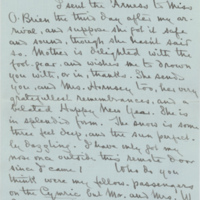 I sent the Arness to Miss
O'Brien the third day after my ar-
rival, and suppose she got it safe
and sound, though she hasn't said
so. Mother is delighted with the
foot-gear, and wishes me to drown
you with, or in, thanks. She sends
you, and Mrs. Hornsey too, and her very
gratefullest remembrances, and a
belated Happy New Year. She is
in splendid form. The snow is some
three feet deep, and the sun perfect-
ly dazzling. I have only got my
nose once outside this remote door
since I came! Who do you
think were my fellow-passengers
on the Cymric but Mr. and Mrs. W